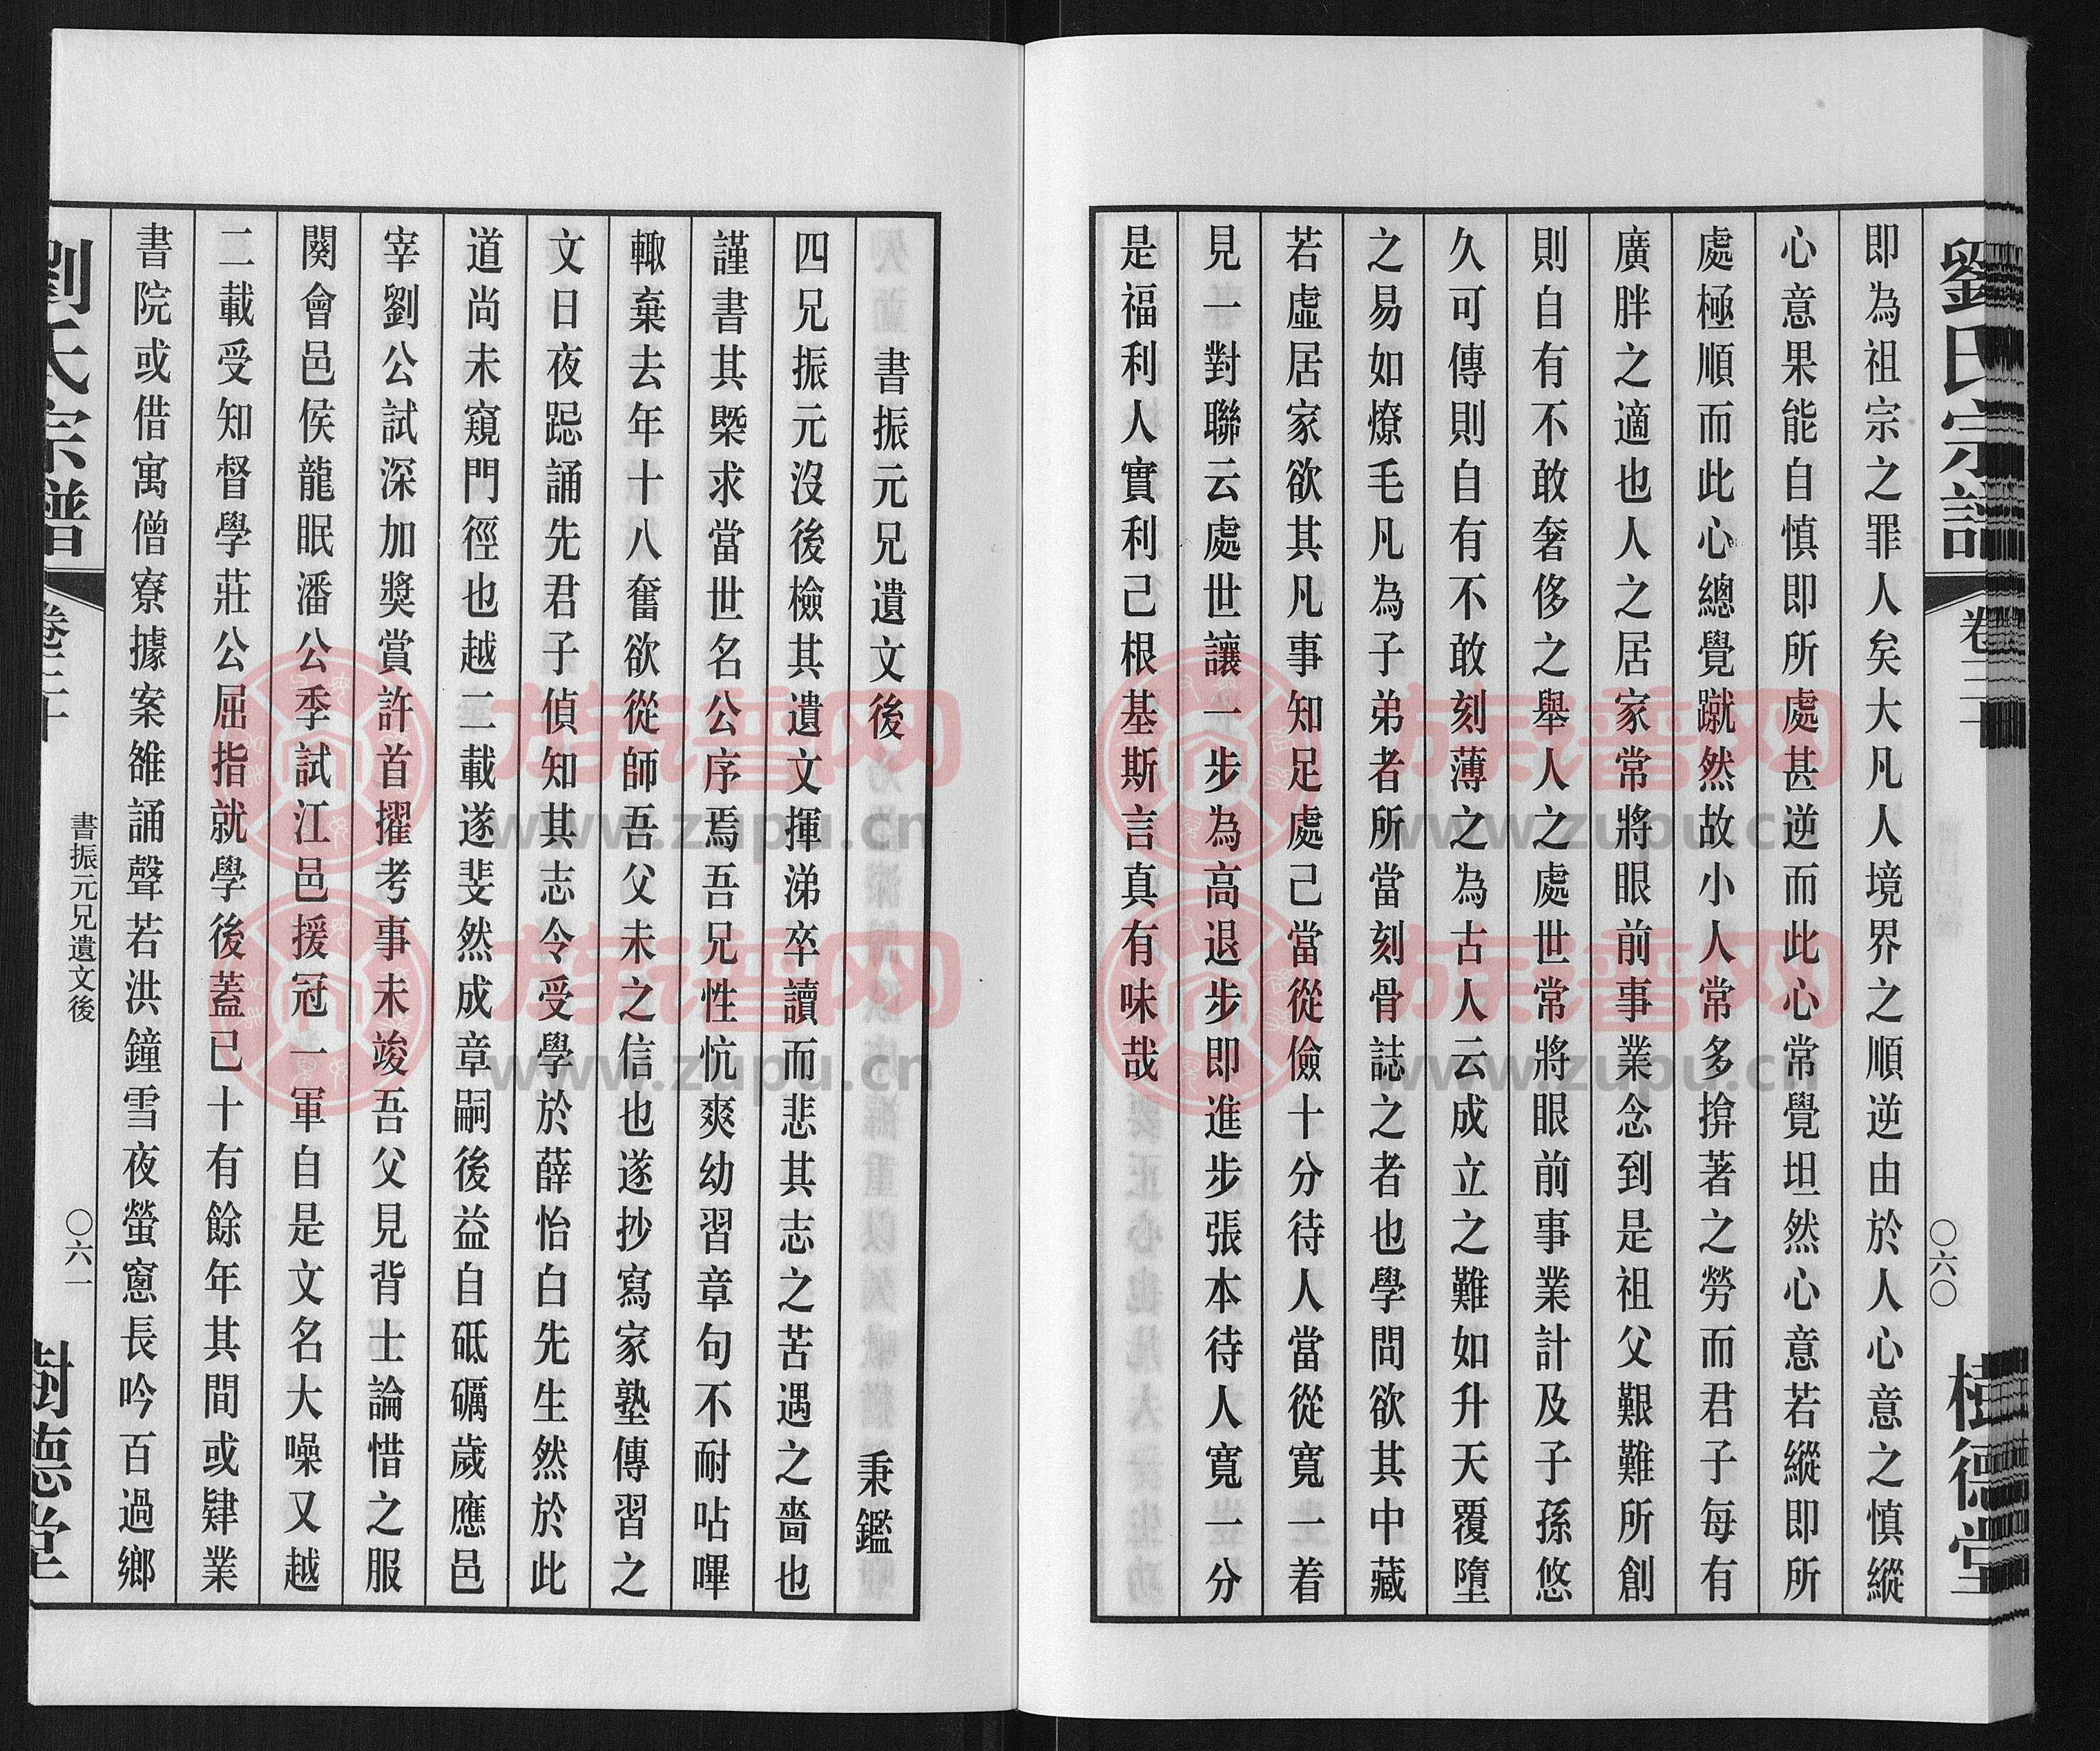 劉氏宗譜
卷三十
〇六〇
樹德堂
即為祖宗之罪人矣大凡人境界之順逆由於人心意之慎縱
心意果能自慎即所處甚逆而此心常覺坦然心意若縱即所
處極順而此心總覺蹴然故小人常多揜著之勞而君子每有
廣胖之適也人之居家常將眼前事業念到是祖父艱難所創
則自有不敢奢侈之舉人之處世常將眼前事業計及子孫悠
久可傳則自有不敢刻薄之為古人云成立之難如升天覆墮
之易如燎毛凡為子弟者所當刻骨誌之者也學問欲其中藏
若虛居家欲其凡事知足處己當從儉十分待人當從寬一着
見一對聯云處世讓一步為高退步即進步張本待人寬一分
是福利人實利己根基斯言真有味哉
書振元兄遺文後
秉鑑
四兄振元沒後檢其遺文揮涕卒讀而悲其志之苦遇之嗇也
謹書其槩求當世名公序焉吾兄性忼爽幼習章句不耐呫嗶
輙棄去年十八奮欲從師吾父未之信也遂抄寫家塾傳習之
文日夜跽誦先君子偵知其志令受學於薛怡白先生然於此
道尚未窺門徑也越二載遂斐然成章嗣後益自砥礪歲應邑
宰劉公試深加獎賞許首擢考事未竣吾父見背士論惜之服
闋會邑侯龍眠潘公季試江邑援冠一軍自是文名大噪又越
二載受知督學莊公屈指就學後蓋已十有餘年其間或肄業
書院或借寓僧寮據案雒誦聲若洪鐘雪夜螢窻長吟百過鄉
劉氏宗譜
卷三十
書振元兄遺文後
〇六一
樹德堂
族谱网
www.zupu.cn
族谱网
www.zupu.cn
族谱网
www.zupu.cn
族谱网
www.zupu.cn